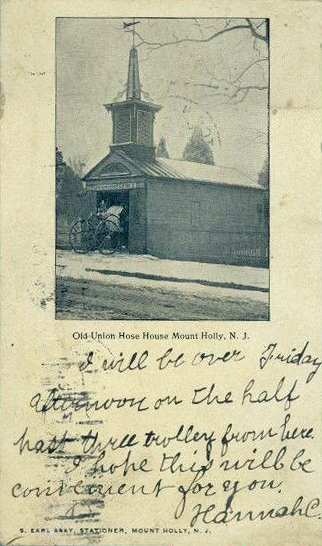 Old Union Hose House Mount Holly, N. J.
I will be over Friday
afternoon on the half
past three trolley from here.
I hope this will be
convenient for you.
Hannah C.
S. EARL ASAY, STATIONER, MOUNT HOLLY, N. J.